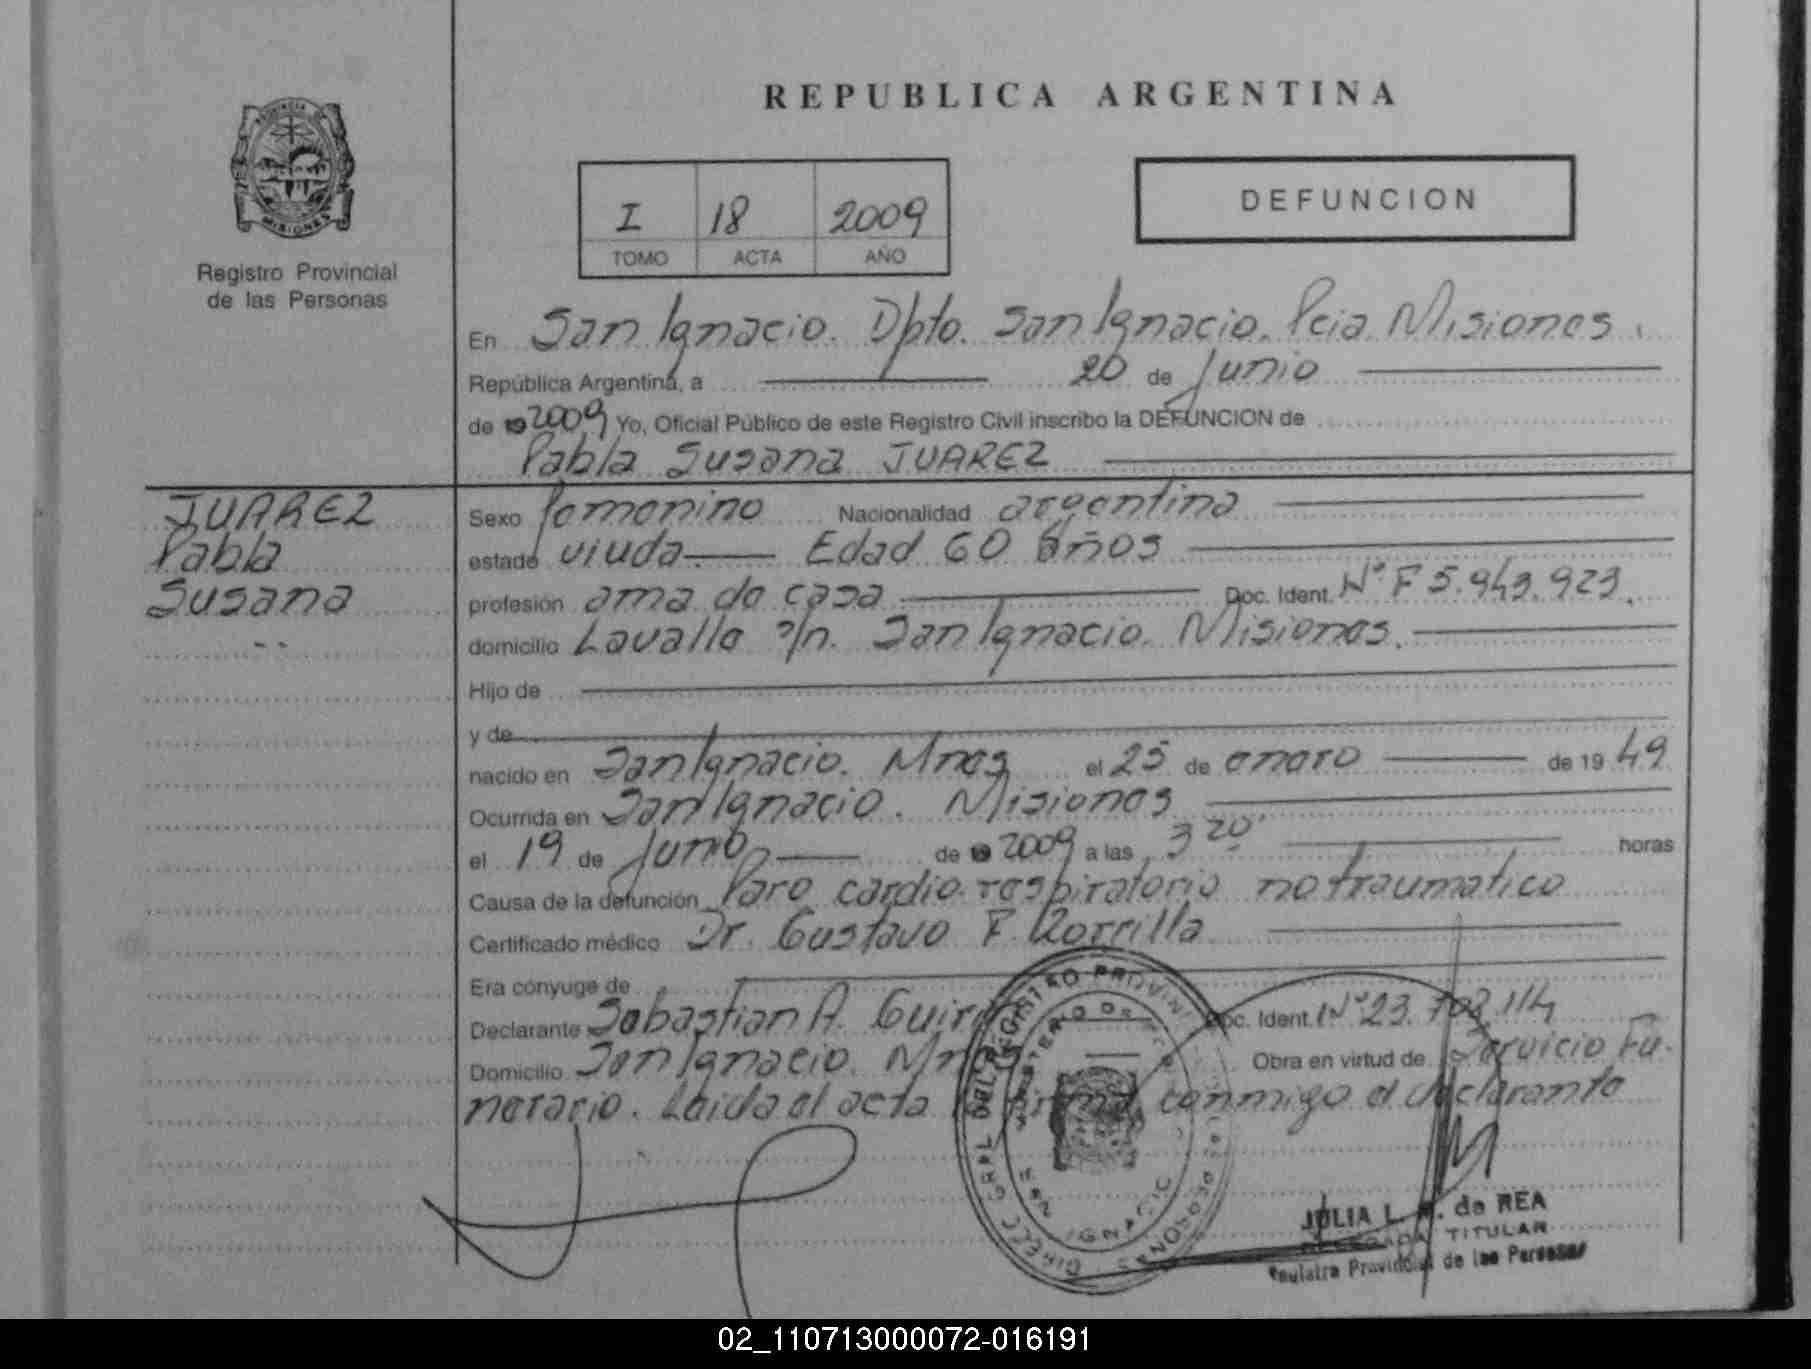 REPUBLICA ARGENTINA
PROVINCIA
MISIONES
Registro Provincial
de las Personas
I 18 2009
TOMO ACTA AÑO
DEFUNCION
En San Ignacio. Dpto. San Ignacio. Pcia. Misiones.
República Argentina, a 20 de Junio
de 2009 Yo, Oficial Público de este Registro Civil inscribo la DEFUNCION de
Pabla Susana JUAREZ
JUAREZ
Pabla
Susana
Sexo femenino Nacionalidad argentina
estado viuda Edad 60 años
profesión ama de casa Doc. Ident. Nº F 5.943.923.
domicilio Lavalle s/n. San Ignacio. Misiones.
Hijo de
y de
nacido en San Ignacio. Mnes el 25 de enero de 19 49
Ocurrida en San Ignacio. Misiones
el 19 de Junio de 2009 a las 3 20' horas
Causa de la defunción Paro cardio-respiratorio no traumatico
Certificado médico Dr. Gustavo F.
Era cónyuge de
Declarante Sebastian A. Doc. Ident. Nº 23.703.114
Domicilio San Ignacio. Obra en virtud de Servicio Fu-
nerario. Leida el acta firma conmigo el declarante
JULIA L. de REA
TITULAR
Provincial de las Personas
02_110713000072-016191